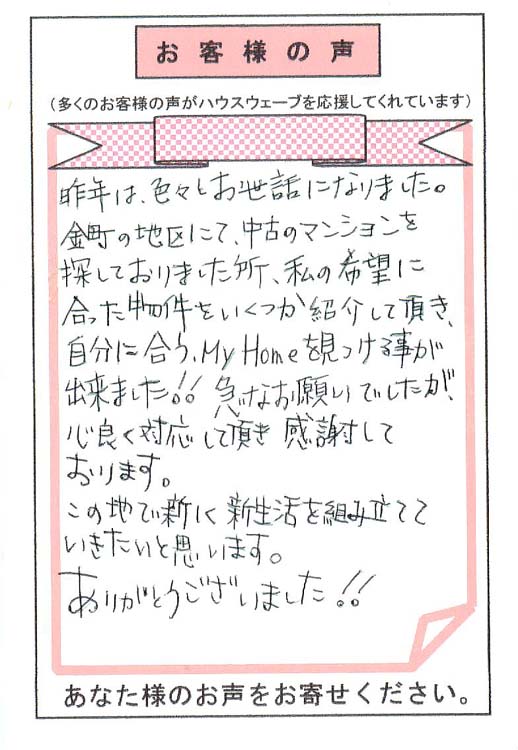 お客様の声
(多くのお客様の声がハウスウェーブを応援してくれています)
昨年は、色々とお世話になりました。
金町の地区にて、中古のマンションを
探しておりました所、私の希望に
合った物件をいくつか紹介して頂き、
自分に合う、My Homeを見つける事が
出来ました!! 急なお願いでしたが、
心良く対応して頂き 感謝して
おります。
この地で新しく新生活を組み立てて
いきたいと思います。
ありがとうございました!!
あなた様のお声をお寄せください。